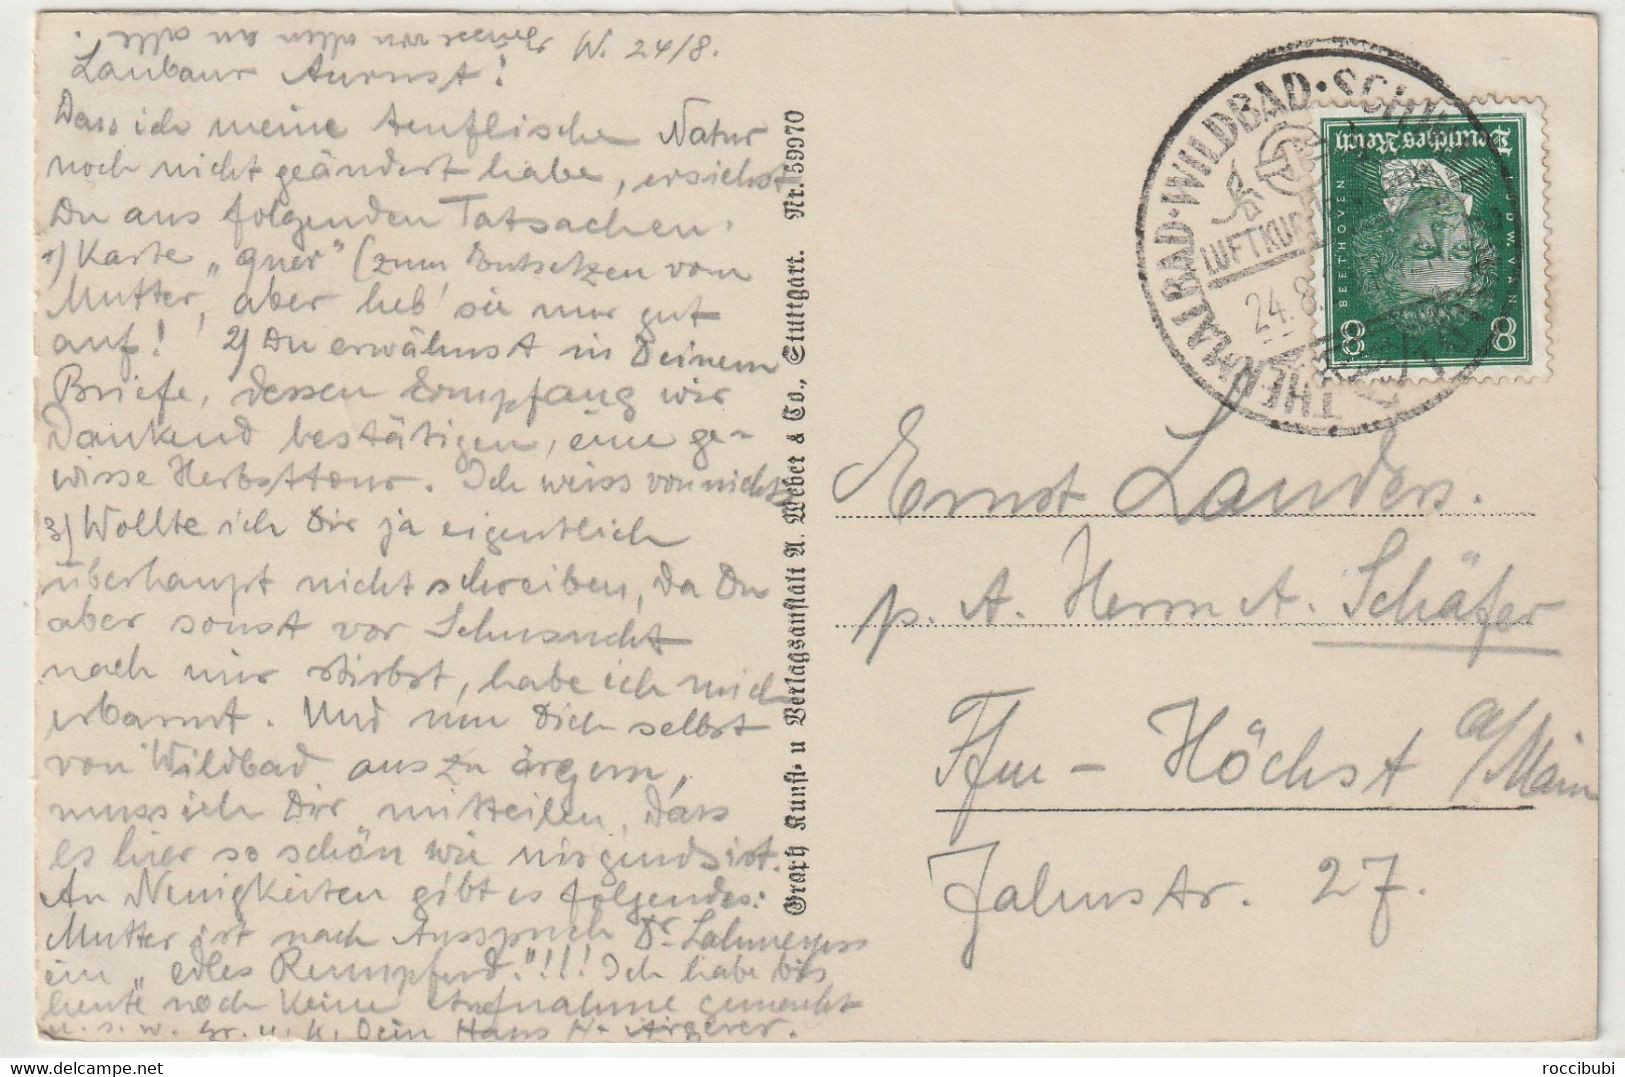 W. 24/8.
von allen an alle.
Dass ich meine teuflische Natur
noch nicht geändert habe, ersiehst
Du aus folgenden Tatsachen:
1) Karte „quer" (zum Entsetzen von
Mutter, aber heb' sie nur gut
auf! 2) Du erwähnst in Deinem
Briefe, dessen Empfang wir
Dankend bestätigen, eine ge-
wisse Herbsttour. Ich weiss von nichts
3) Wollte ich Dir ja eigentlich
überhaupt nicht schreiben, da Du
aber sonst vor Sehnsucht
nach mir stirbst, habe ich mich
erbarmt. Und um Dich selbst
von Wildbad aus zu ärgern,
muss ich Dir mitteilen, dass
es hier so schön wie nirgends ist.
An Neuigkeiten gibt es folgendes:
Mutter ist nach Ausspruch Dr. Lahmeyers
ein „edles Rennpferd."!!! Ich habe bis
heute noch keine Aufnahme gemacht
u. s. w. Gr. u. K. Dein Hans
Graph Kunst- u Verlagsanstalt A. Weber & Co., Stuttgart. Nr. 59970
THERMALBAD · WILDBAD · SCHW
LUFTKUR
24.8
Deutsches Reich
BEETHOVEN
8 8
Ernst Landers.
p. A. Herrn A. Schäfer
Ffm - Höchst a/Main
Jahnstr. 27.
delcampe.net
roccibubi